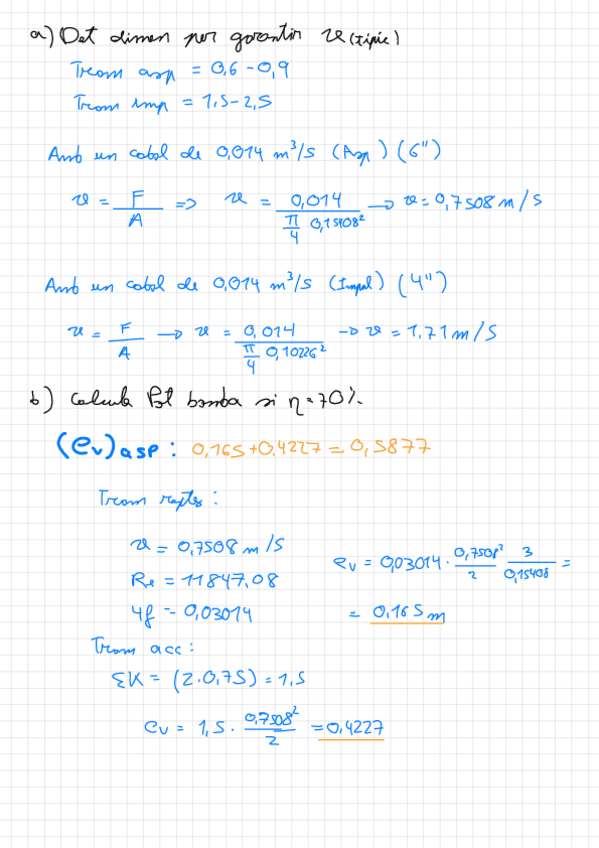 a) Det dimen per garantir v (típic)
Tram asp = 0,6 - 0,9
Tram imp = 1,5 - 2,5
Amb un cabal de 0,014 m³/s (Asp) (6")
v = F/A => v = 0,014 / (π/4 0,15408²) → v = 0,7508 m/s
Amb un cabal de 0,014 m³/s (Impul) (4")
v = F/A → v = 0,014 / (π/4 0,10226²) → v = 1,71 m/s
b) Calcula Pot bomba si η = 70%.
(ev)asp : 0,165 + 0.4227 = 0,5877
Tram rectes :
v = 0,7508 m/s
ev = 0,03014 · 0,7508²/2 3/0,15408 =
Re = 11847,08
4f = 0,03014
= 0,165 m
Tram acc :
ΣK = (2·0,75) = 1,5
ev = 1,5 · 0,7508²/2 = 0,4227